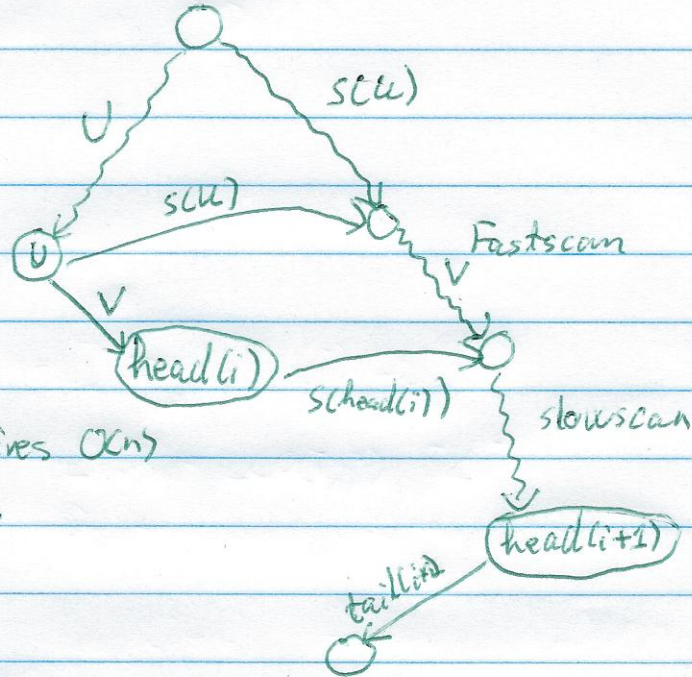 U
s(u)
s(u)
U
Fastscan
V
V
head(i)
s(head(i))
slowscan
O(n)
head(i+1)
tail(i+1)